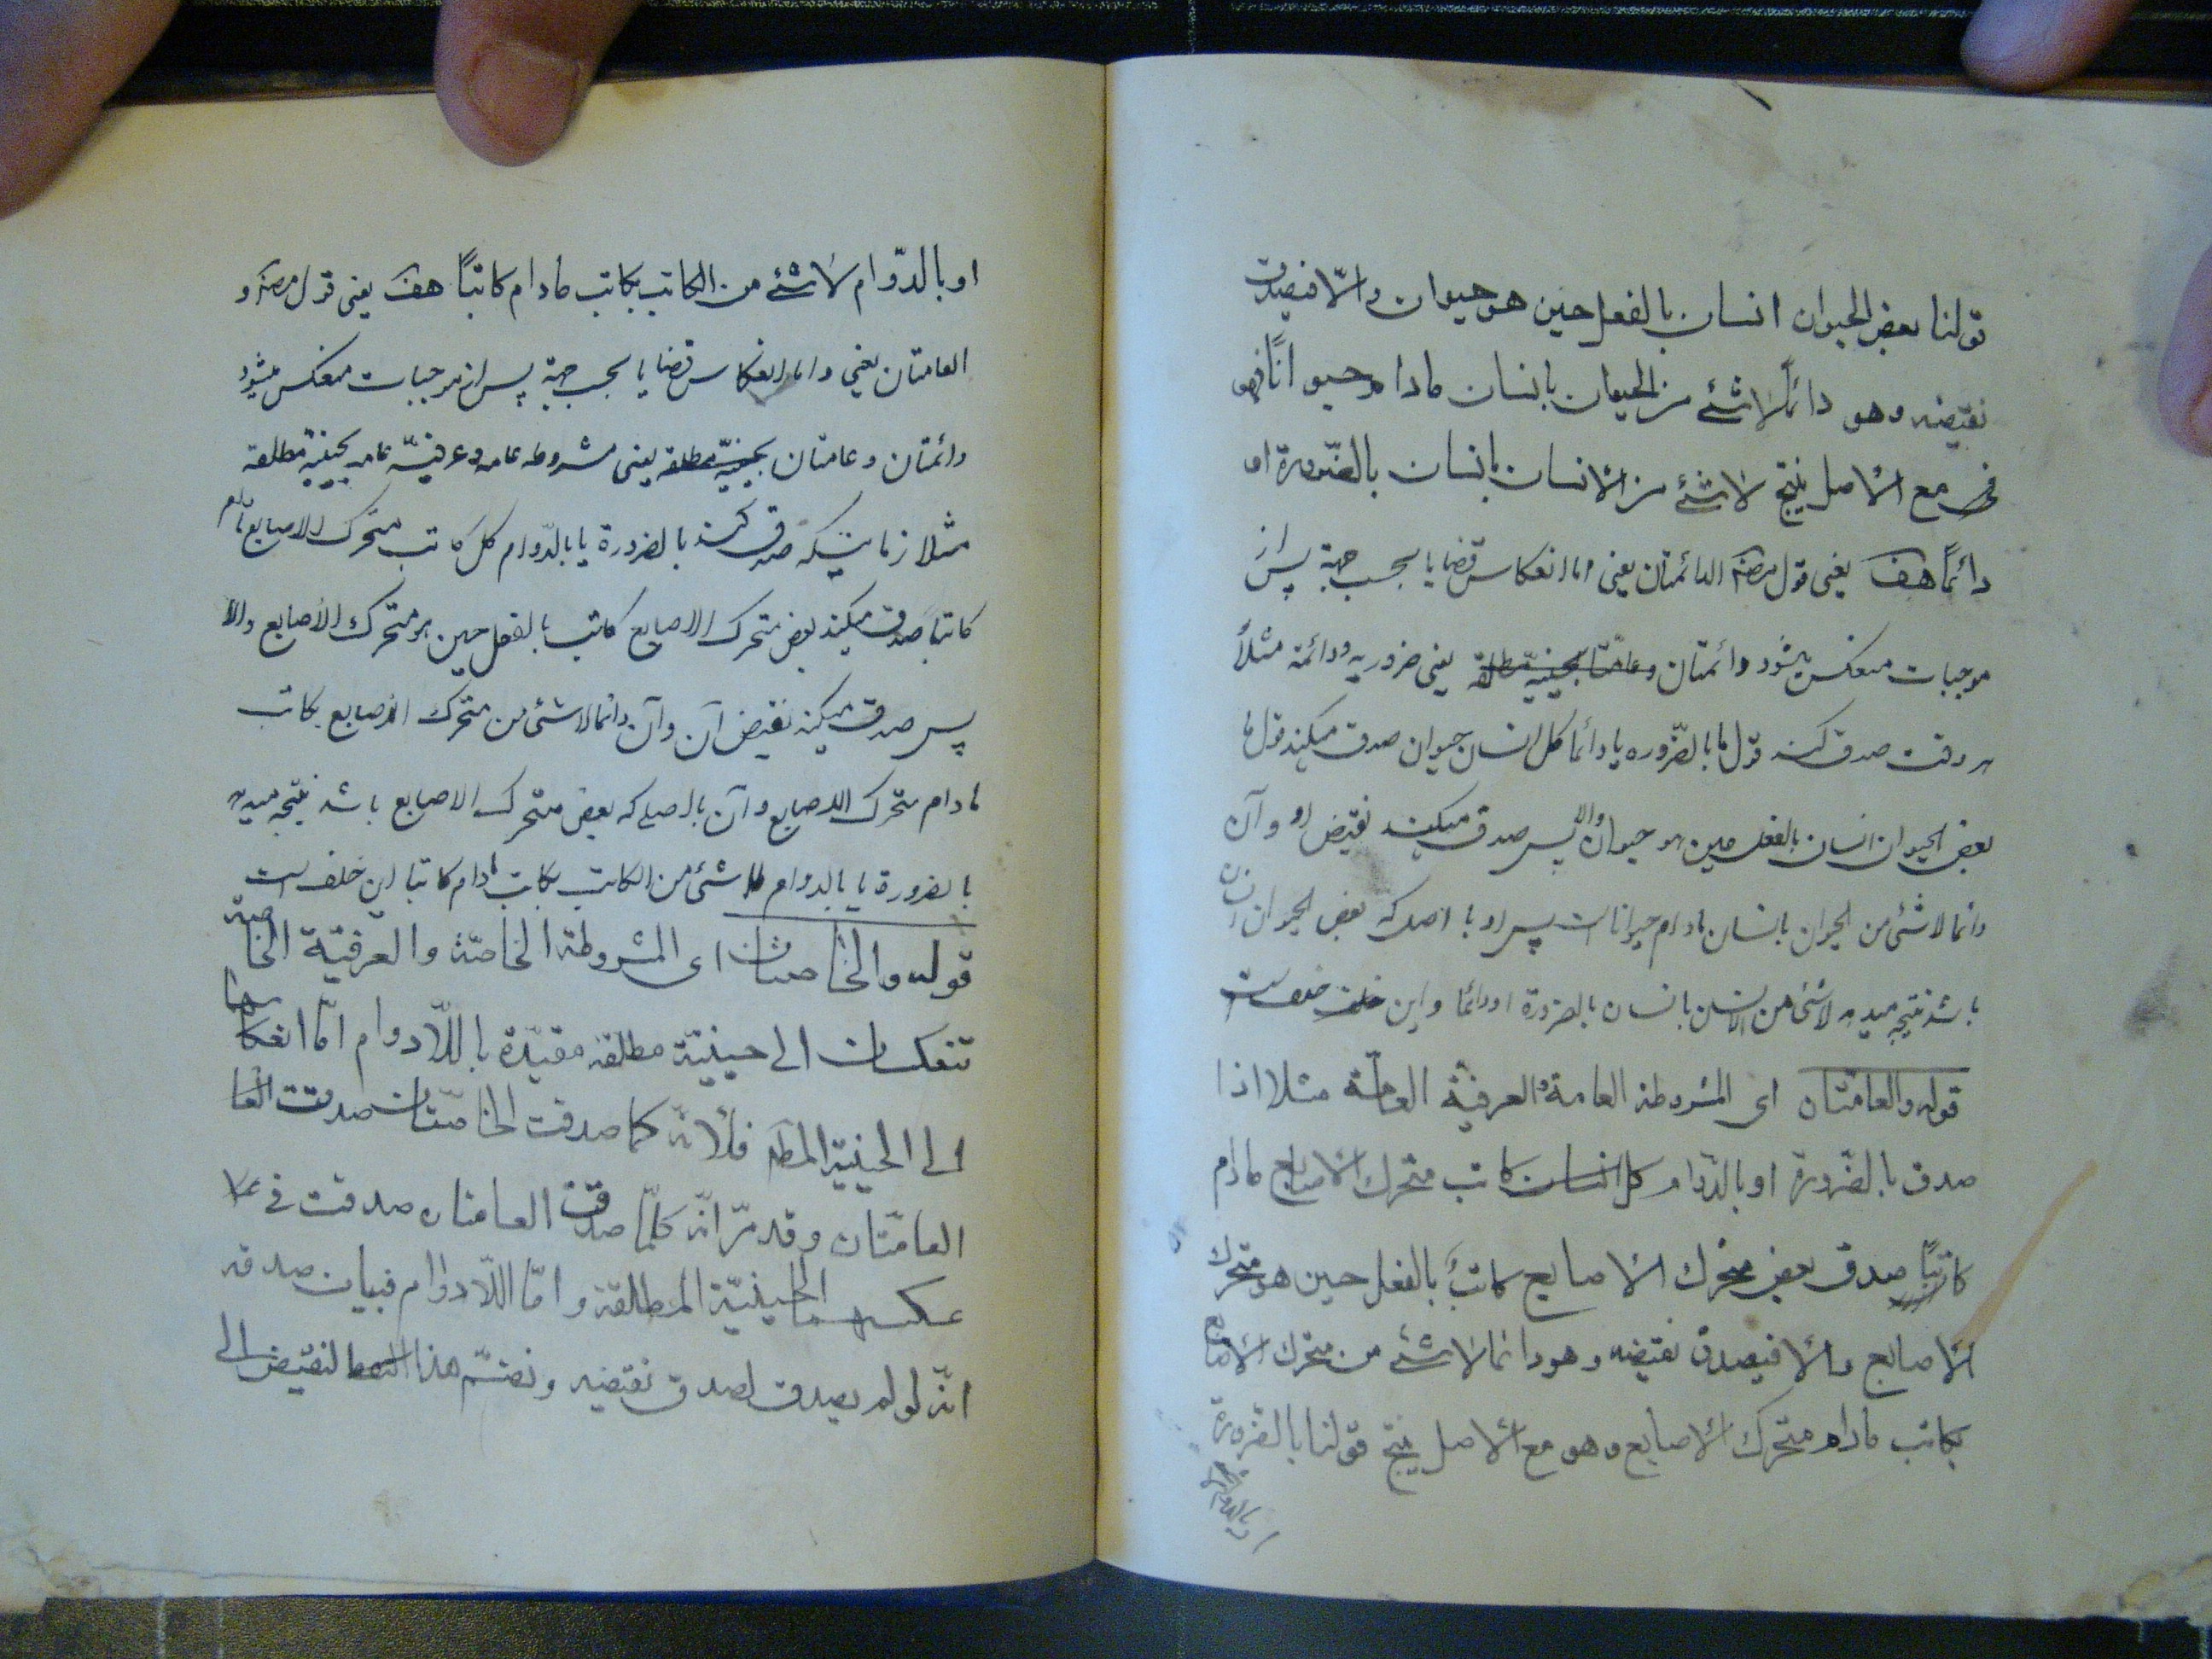 قولنا بعض الحيوان انسان بالفعل حين هو حيوان والّا فيصدق
نقيضه وهو دائمًا لاشئ من الحيوان بانسان مادام حيوانًا فهو
مع الاصل ينتج لاشئ من الانسان بانسان بالضّرورة او
دائمًا هف يعنى قول مصنّف الدائمتان يعنى اما انعكاس قضايا بحسب جهة پس از
موجبات منعكس ميشود دائمتان وعامتا بحينيّة مطلقه يعنى ضروريه ودائمة مثلاً
هر وقت صدق كند قول ما بالضّروره يا دائما كل انسان حيوان صدق ميكند قول ما
بعض الحيوان انسان بالفعل حين هو حيوان والا پس صدق ميكند نقيض او وآن
دائما لاشئ من الحيوان بانسان مادام حيوانا است پس او با اصل كه بعض الحيوان انسان
باشد نتيجه ميدهد لاشئ من الانسان بانسان بالضرورة او دائما واين خلف خلف است
قوله والعامّتان اى المشروطة العامة والعرفيّة العامّة مثلا اذا
صدق بالضّرورة او بالدّوام كل انسان كاتب متحرك الاصابع مادام
كاتبًا صدق بعض متحرك الاصابع كاتب بالفعل حين هو متحرك
الاصابع والا فيصدق نقيضه وهو دائما لاشئ من متحرك الاصابع
بكاتب مادام متحرك الاصابع وهو مع الاصل ينتج قولنا بالضّرورة
او بالدّوام
او بالدّوام لاشئ من الكاتب بكاتب مادام كاتبًا هف يعنى قول مصنّف و
العامتان يعنى واما انعكاس قضايا بحسب جهة پس از موجبات منعكس ميشود
دائمتان وعامتان بحينيّة مطلقه يعنى مشروطه عامه وعرفيّه عامه بحينيّة مطلقه
مثلا زمانيكه صدق كند بالضرورة يا بالدّوام كل كاتب متحرك الاصابع مادام
كاتبا صدق ميكند بعض متحرك الاصابع كاتب بالفعل حين هو متحرك الاصابع والا
پس صدق ميكند نقيض آن وآن دائما لاشئ من متحرك الاصابع بكاتب
مادام متحرك الاصابع وآن با اصلى كه بعض متحرك الاصابع باشد نتيجه ميدهد
بالضرورة يا بالدوام لاشئ من الكاتب بكاتب مادام كاتبا اين خلف است
قوله والخاصّتان اى المشروطة الخاصّة والعرفيّة الخاصّة
تنعكسان الى حينيّة مطلقه مقيّدة باللّادوام امّا انعكاسهما
الى الحينيّة المطلقه فلأنّه كلما صدقت الخاصّتان صدقت العا
العامّتان وقد مرّ انّه كلّما صدقت العامتان صدقت فى
عكسهما الحينيّة المطلقة وامّا اللّادوام فبيان صدقه
انّه لو لم يصدق لصدق نقيضه ونضمّ هذا النقيض الى